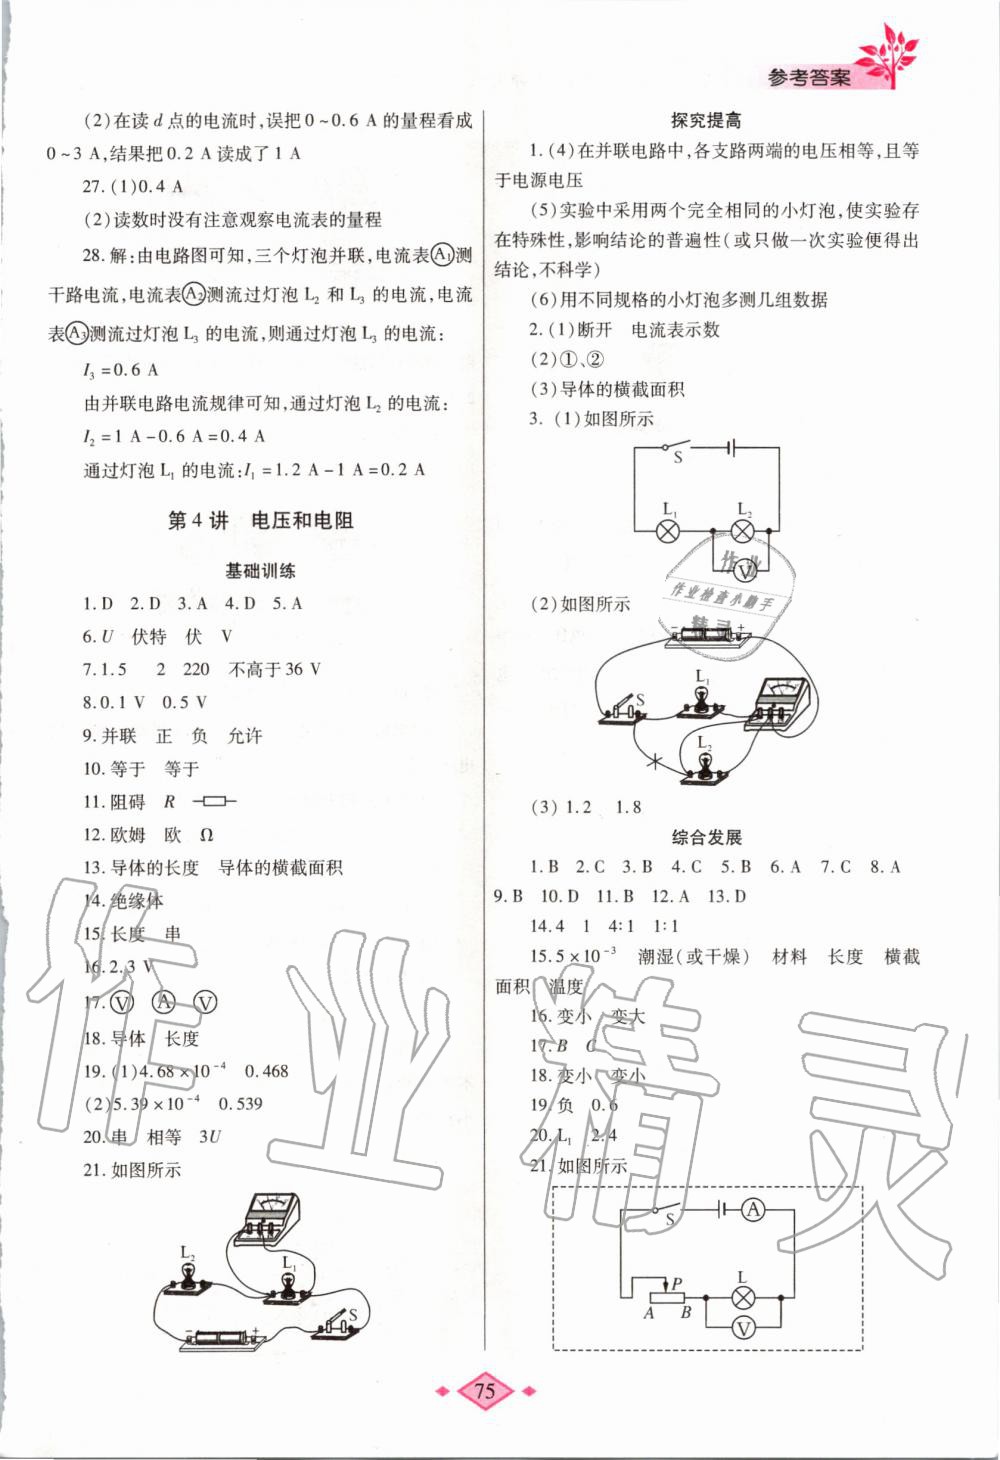 参考答案
(2)在读 d 点的电流时,误把 0~0.6 A 的量程看成
0~3 A,结果把 0.2 A 读成了 1 A
27. (1)0.4 A
(2)读数时没有注意观察电流表的量程
28.解:由电路图可知,三个灯泡并联,电流表Ⓐ₁测
干路电流,电流表Ⓐ₂测流过灯泡 L₂ 和 L₃ 的电流,电流
表Ⓐ₃测流过灯泡 L₃ 的电流,则通过灯泡 L₃ 的电流:
I₃=0.6 A
由并联电路电流规律可知,通过灯泡 L₂ 的电流:
I₂=1 A-0.6 A=0.4 A
通过灯泡 L₁ 的电流:I₁=1.2 A-1 A=0.2 A
第 4 讲 电压和电阻
基础训练
1.D 2.D 3.A 4.D 5.A
6.U 伏特 伏 V
7.1.5 2 220 不高于 36 V
8.0.1 V 0.5 V
9.并联 正 负 允许
10.等于 等于
11.阻碍 R
12.欧姆 欧 Ω
13.导体的长度 导体的横截面积
14.绝缘体
15.长度 串
16.2.3 V
17.Ⓥ Ⓐ Ⓥ
18.导体 长度
19.(1)4.68×10⁻⁴ 0.468
(2)5.39×10⁻⁴ 0.539
20.串 相等 3U
21.如图所示
L₂
L₁
S
- +
探究提高
1.(4)在并联电路中,各支路两端的电压相等,且等
于电源电压
(5)实验中采用两个完全相同的小灯泡,使实验存
在特殊性,影响结论的普遍性(或只做一次实验便得出
结论,不科学)
(6)用不同规格的小灯泡多测几组数据
2.(1)断开 电流表示数
(2)①、②
(3)导体的横截面积
3.(1)如图所示
S
L₁ L₂
V
(2)如图所示
- +
L₁
S
L₂
(3)1.2 1.8
综合发展
1.B 2.C 3.B 4.C 5.B 6.A 7.C 8.A
9.B 10.D 11.B 12.A 13.D
14.4 1 4:1 1:1
15.5×10⁻³ 潮湿(或干燥) 材料 长度 横截
面积 温度
16.变小 变大
17.B C
18.变小 变小
19.负 0.6
20.L₁ 2.4
21.如图所示
S A
P L
A B
V
75
作业
作业检查小助手
精灵
作业精灵